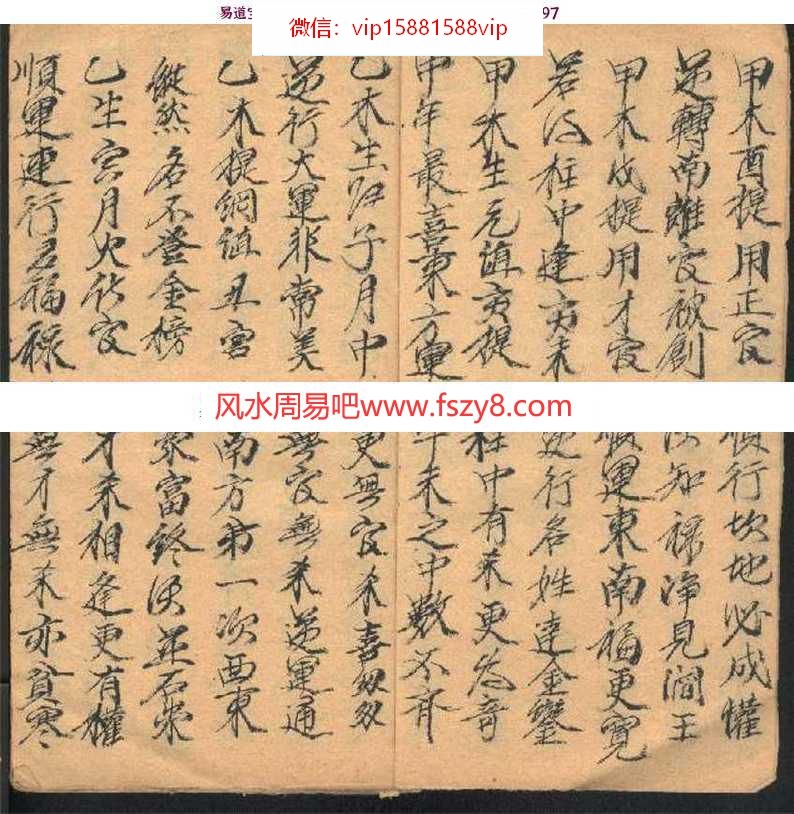 易道
97
微信：vip15881588vip
甲木酉提用正官
逆轉南離官被創
甲木戌提用才官
若得柱中逢亥未
甲木生元值亥提
申年最喜東方運
乙木生 子月中
逆行大運非常美
乙木提綱值丑宮
縱然名不登金榜
乙生 月火 官
順運運行 福祿
风水周易吧www.fszy8.com
順行坎地必成權
須知祿 見閻王
順運東南福更寬
逆行名姓達金鑾
柱中有未更為奇
午未之中數不齊
更無官杀喜
無官無杀逆運通
南方 一次西東
家富終須並石崇
才杀相逢更有權
無才無杀亦貧寒